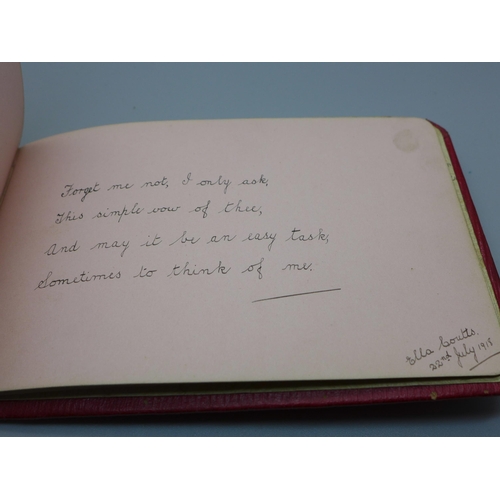 Forget me not, I only ask,
This simple vow of thee,
And may it be an easy task,
Sometimes to think of me.
Ella Coutts.
22nd July 1915